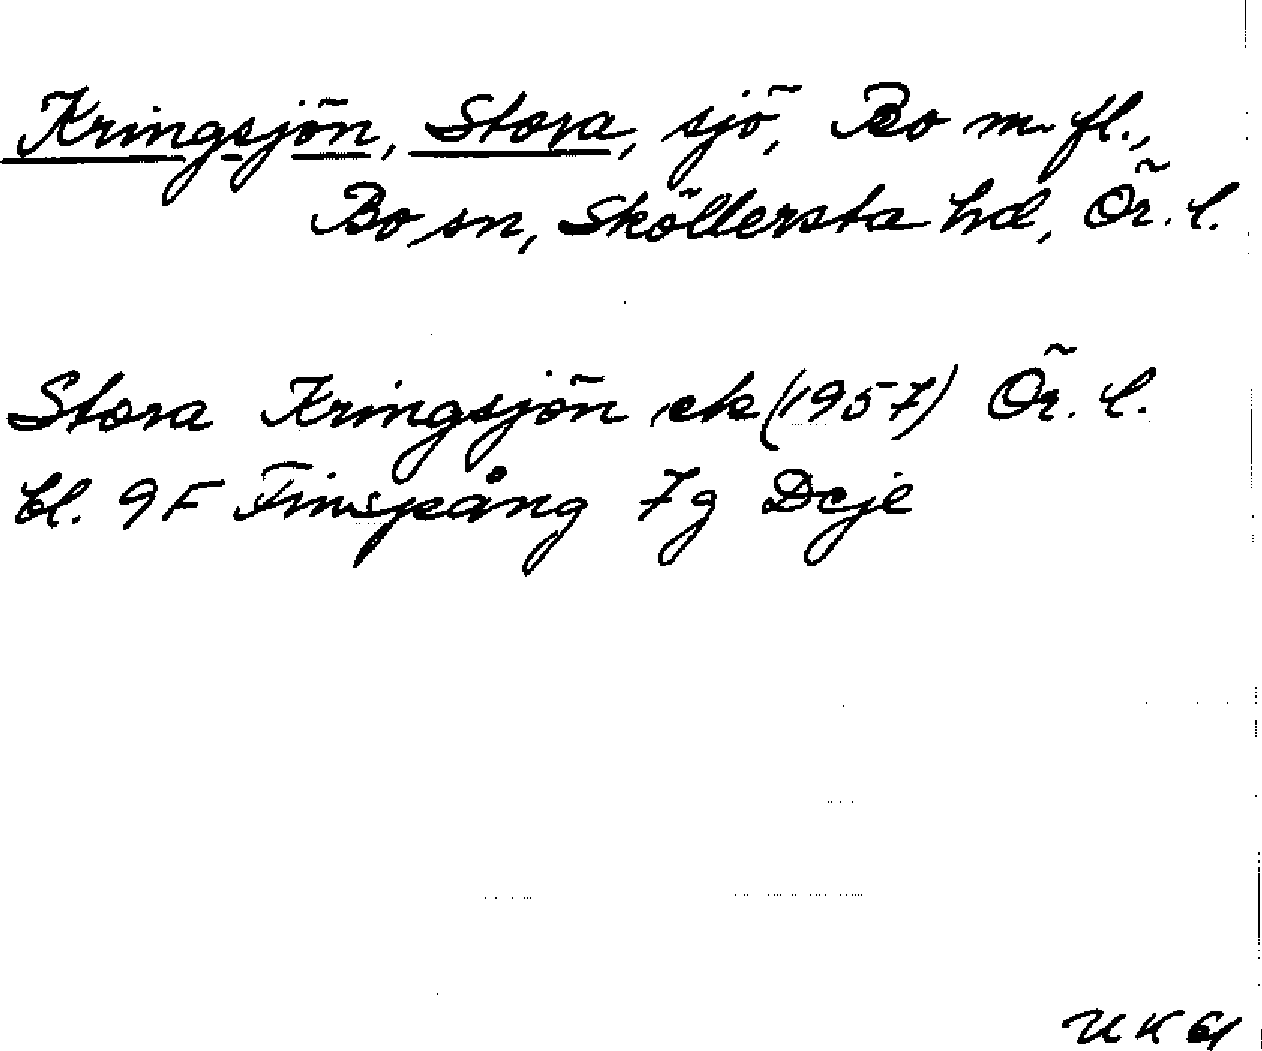 Kringsjön, Stora, sjö, Bo m. fl.,
Bo sn, Sköllersta hd, Ör. l.
Stora Kringsjön ek (1957) Ör. l.
bl. 9F Finspång 7g Deje
UK 61